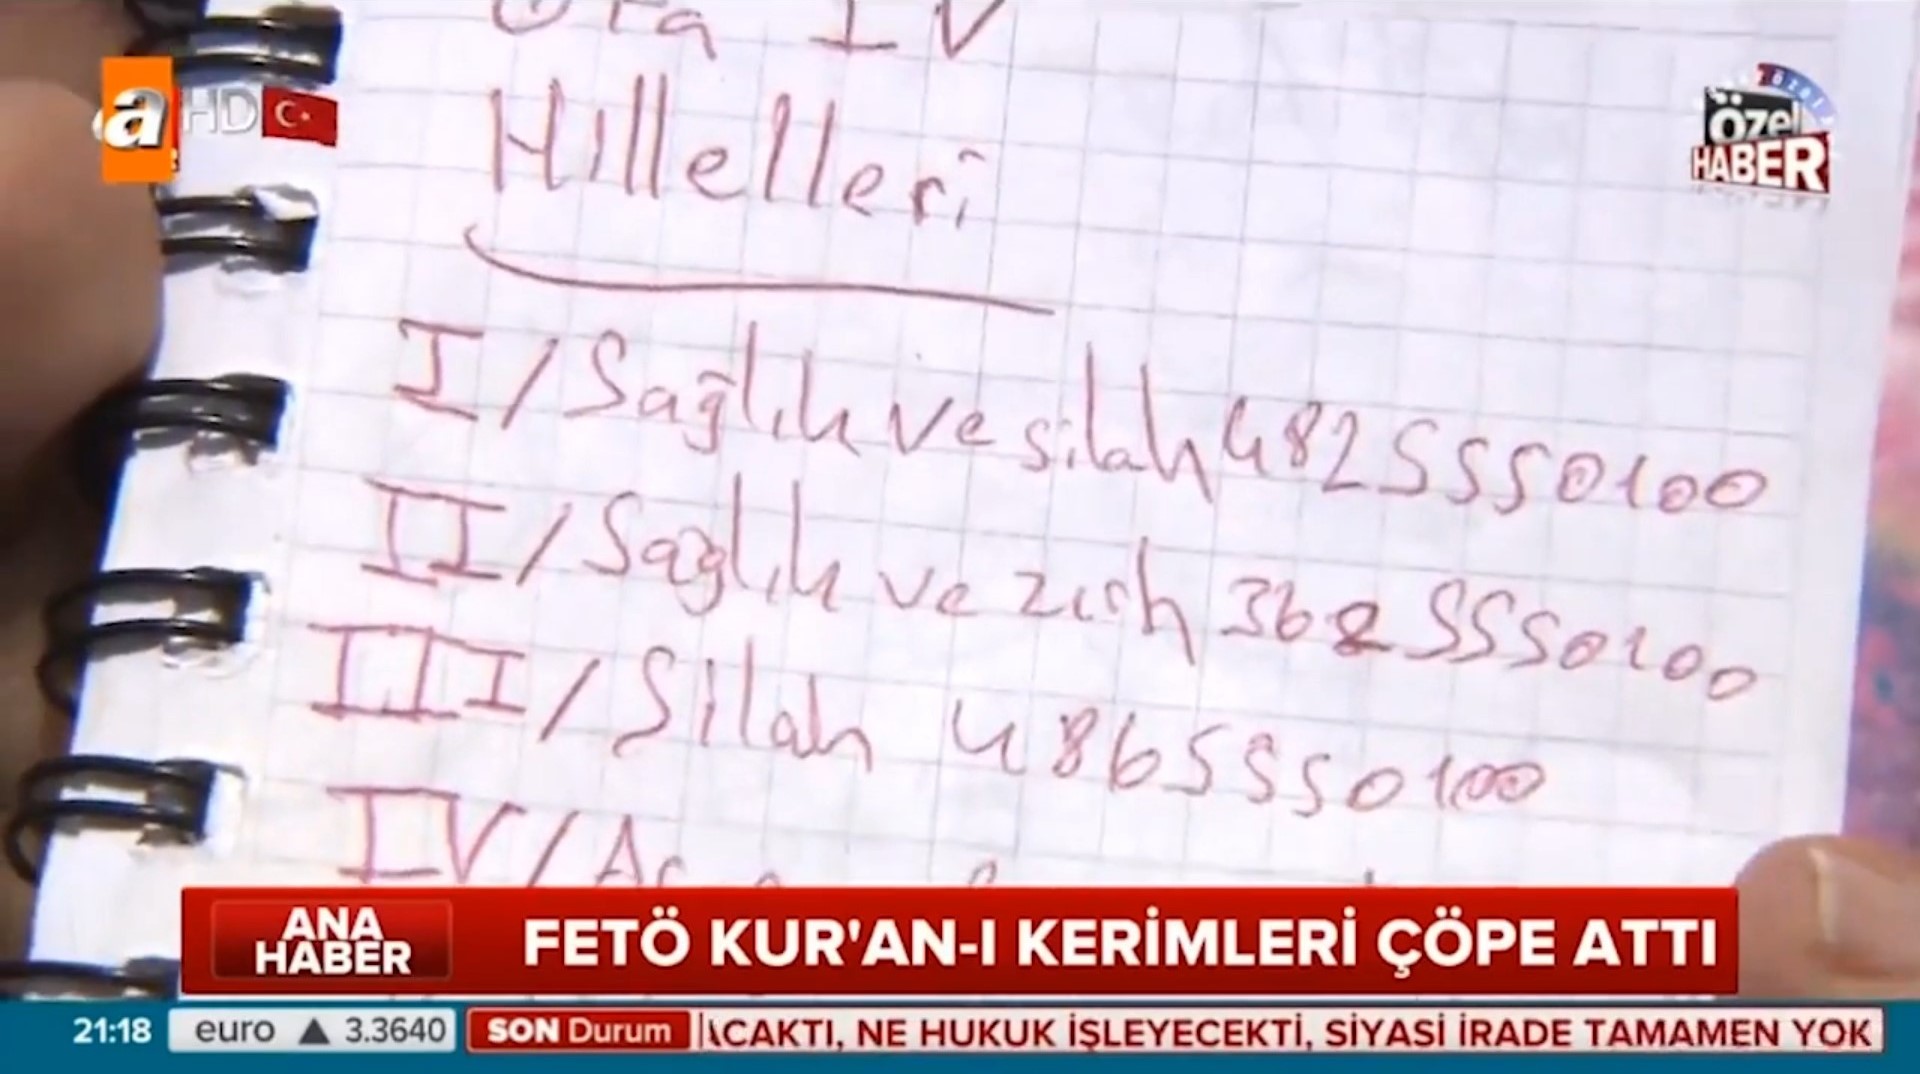 GTA IV
Hıllelleri
I/Sağlık ve silah 4825550100
II/Sağlık ve zırh 3625550100
III/Silah 4865550100
IV/
a HD
özel
Özel
HABER
ANA
HABER
FETÖ KUR'AN-I KERİMLERİ ÇÖPE ATTI
21:18 euro ▲ 3.3640 SON Durum ACAKTI, NE HUKUK İŞLEYECEKTİ, SİYASİ İRADE TAMAMEN YOK